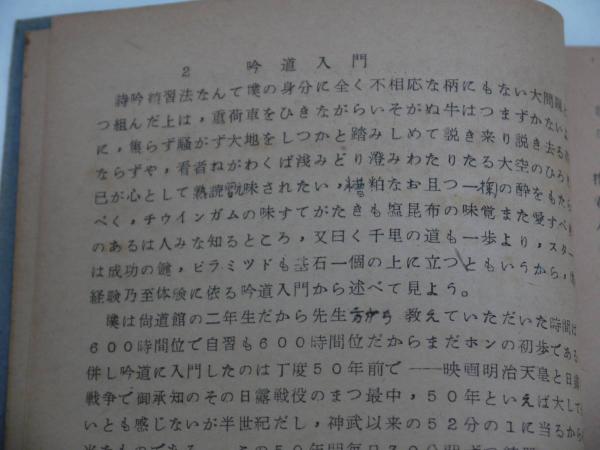 2 吟道入門
詩吟練習法なんて僕の身分に全く不相応な柄にもない大問題と
つ組んだ上は，重荷車をひきながらいそがぬ牛はつまずかないよ
に，焦らず騒がず大地をしつかと踏みしめて説き来り説き去る
ならずや，看者ねがわくば浅みどり澄みわたりたる大空のひろ
已が心として熟読翫味されたい，糟粕なお且つ一掬の酔をもた
べく，チウインガムの味すてがたきも塩昆布の味覚また愛すべ
のあるは人みな知るところ，又曰く千里の道も一歩より，スター
は成功の鍵，ピラミツドも基石一個の上に立つともいうから，
経験乃至体験に依る吟道入門から述べて見よう。
僕は尙道館の二年生だから先生方から 教えていただいた時間は
600時間位で自習も600時間位だからまだホンの初歩である
併し吟道に入門したのは丁度50年前で——映画明治天皇と日露
戦争で御承知のその日露戦役のまつ最中，50年といえば大して
いとも感じないが半世紀だし，神武以来の52分の1に当るから